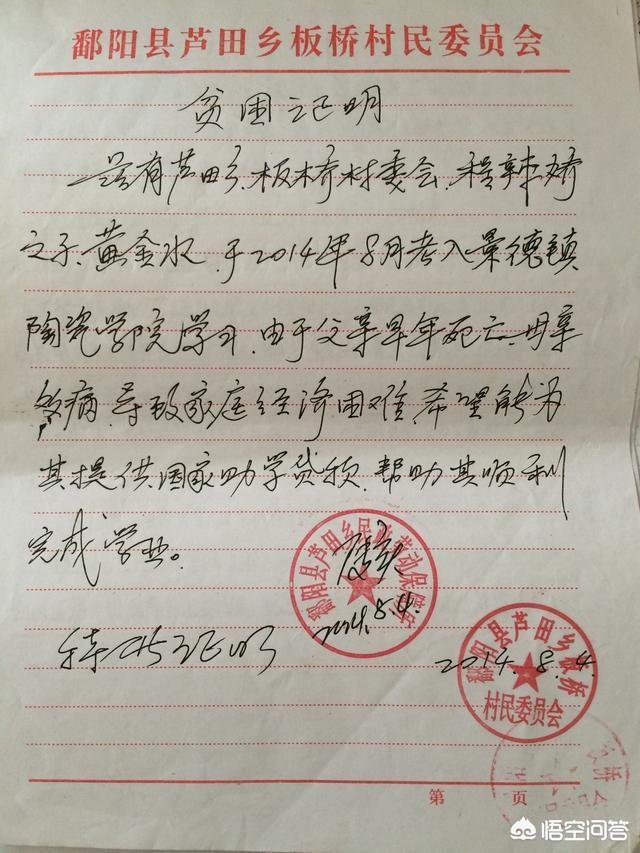 鄱阳县芦田乡板桥村民委员会
贫困证明
兹有芦田乡板桥村委会,程辣娇
之子黄金水,于2014年8月考入景德镇
陶瓷学院学习,由于父亲早年死亡,母亲
多病,导致家庭经济困难,希望能为
其提供国家助学贷款,帮助其顺利
完成学业。
鄱阳县芦田乡民政劳动保障所
2014.8.4.
特此证明
2014.8.4.
鄱阳县芦田乡板桥
村民委员会
第 页
悟空问答